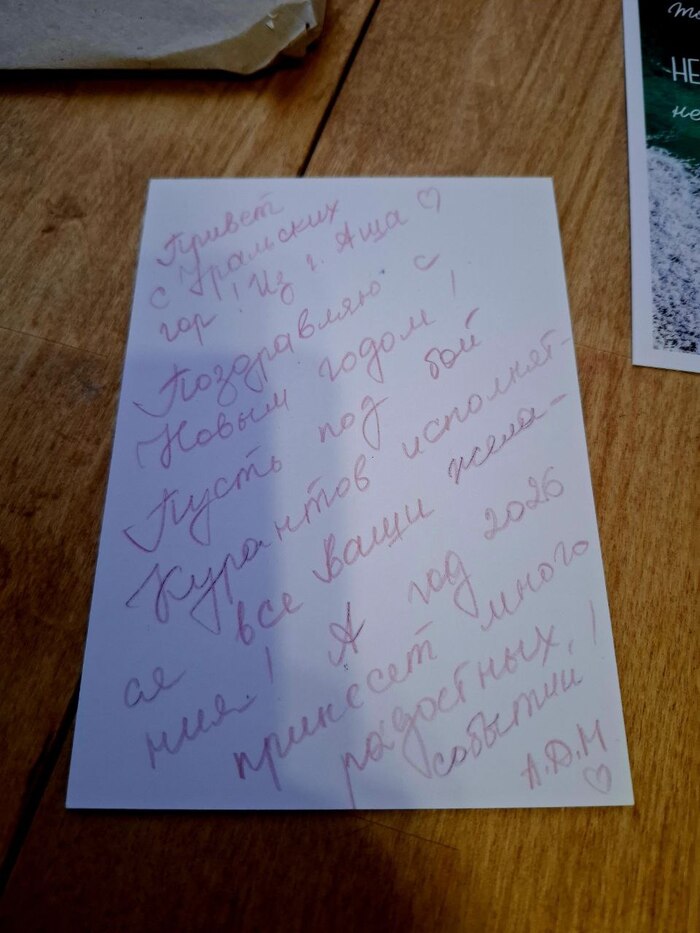 Привет
с Уральских
гор! Из г. Аша ♡
Поздравляю с
Новым годом!
Пусть под бой
Курантов исполнят-
ся все Ваши жела-
ния! А год 2026
принесет много
радостных,
событий!
А.Д.Н
♡
НЕ
не